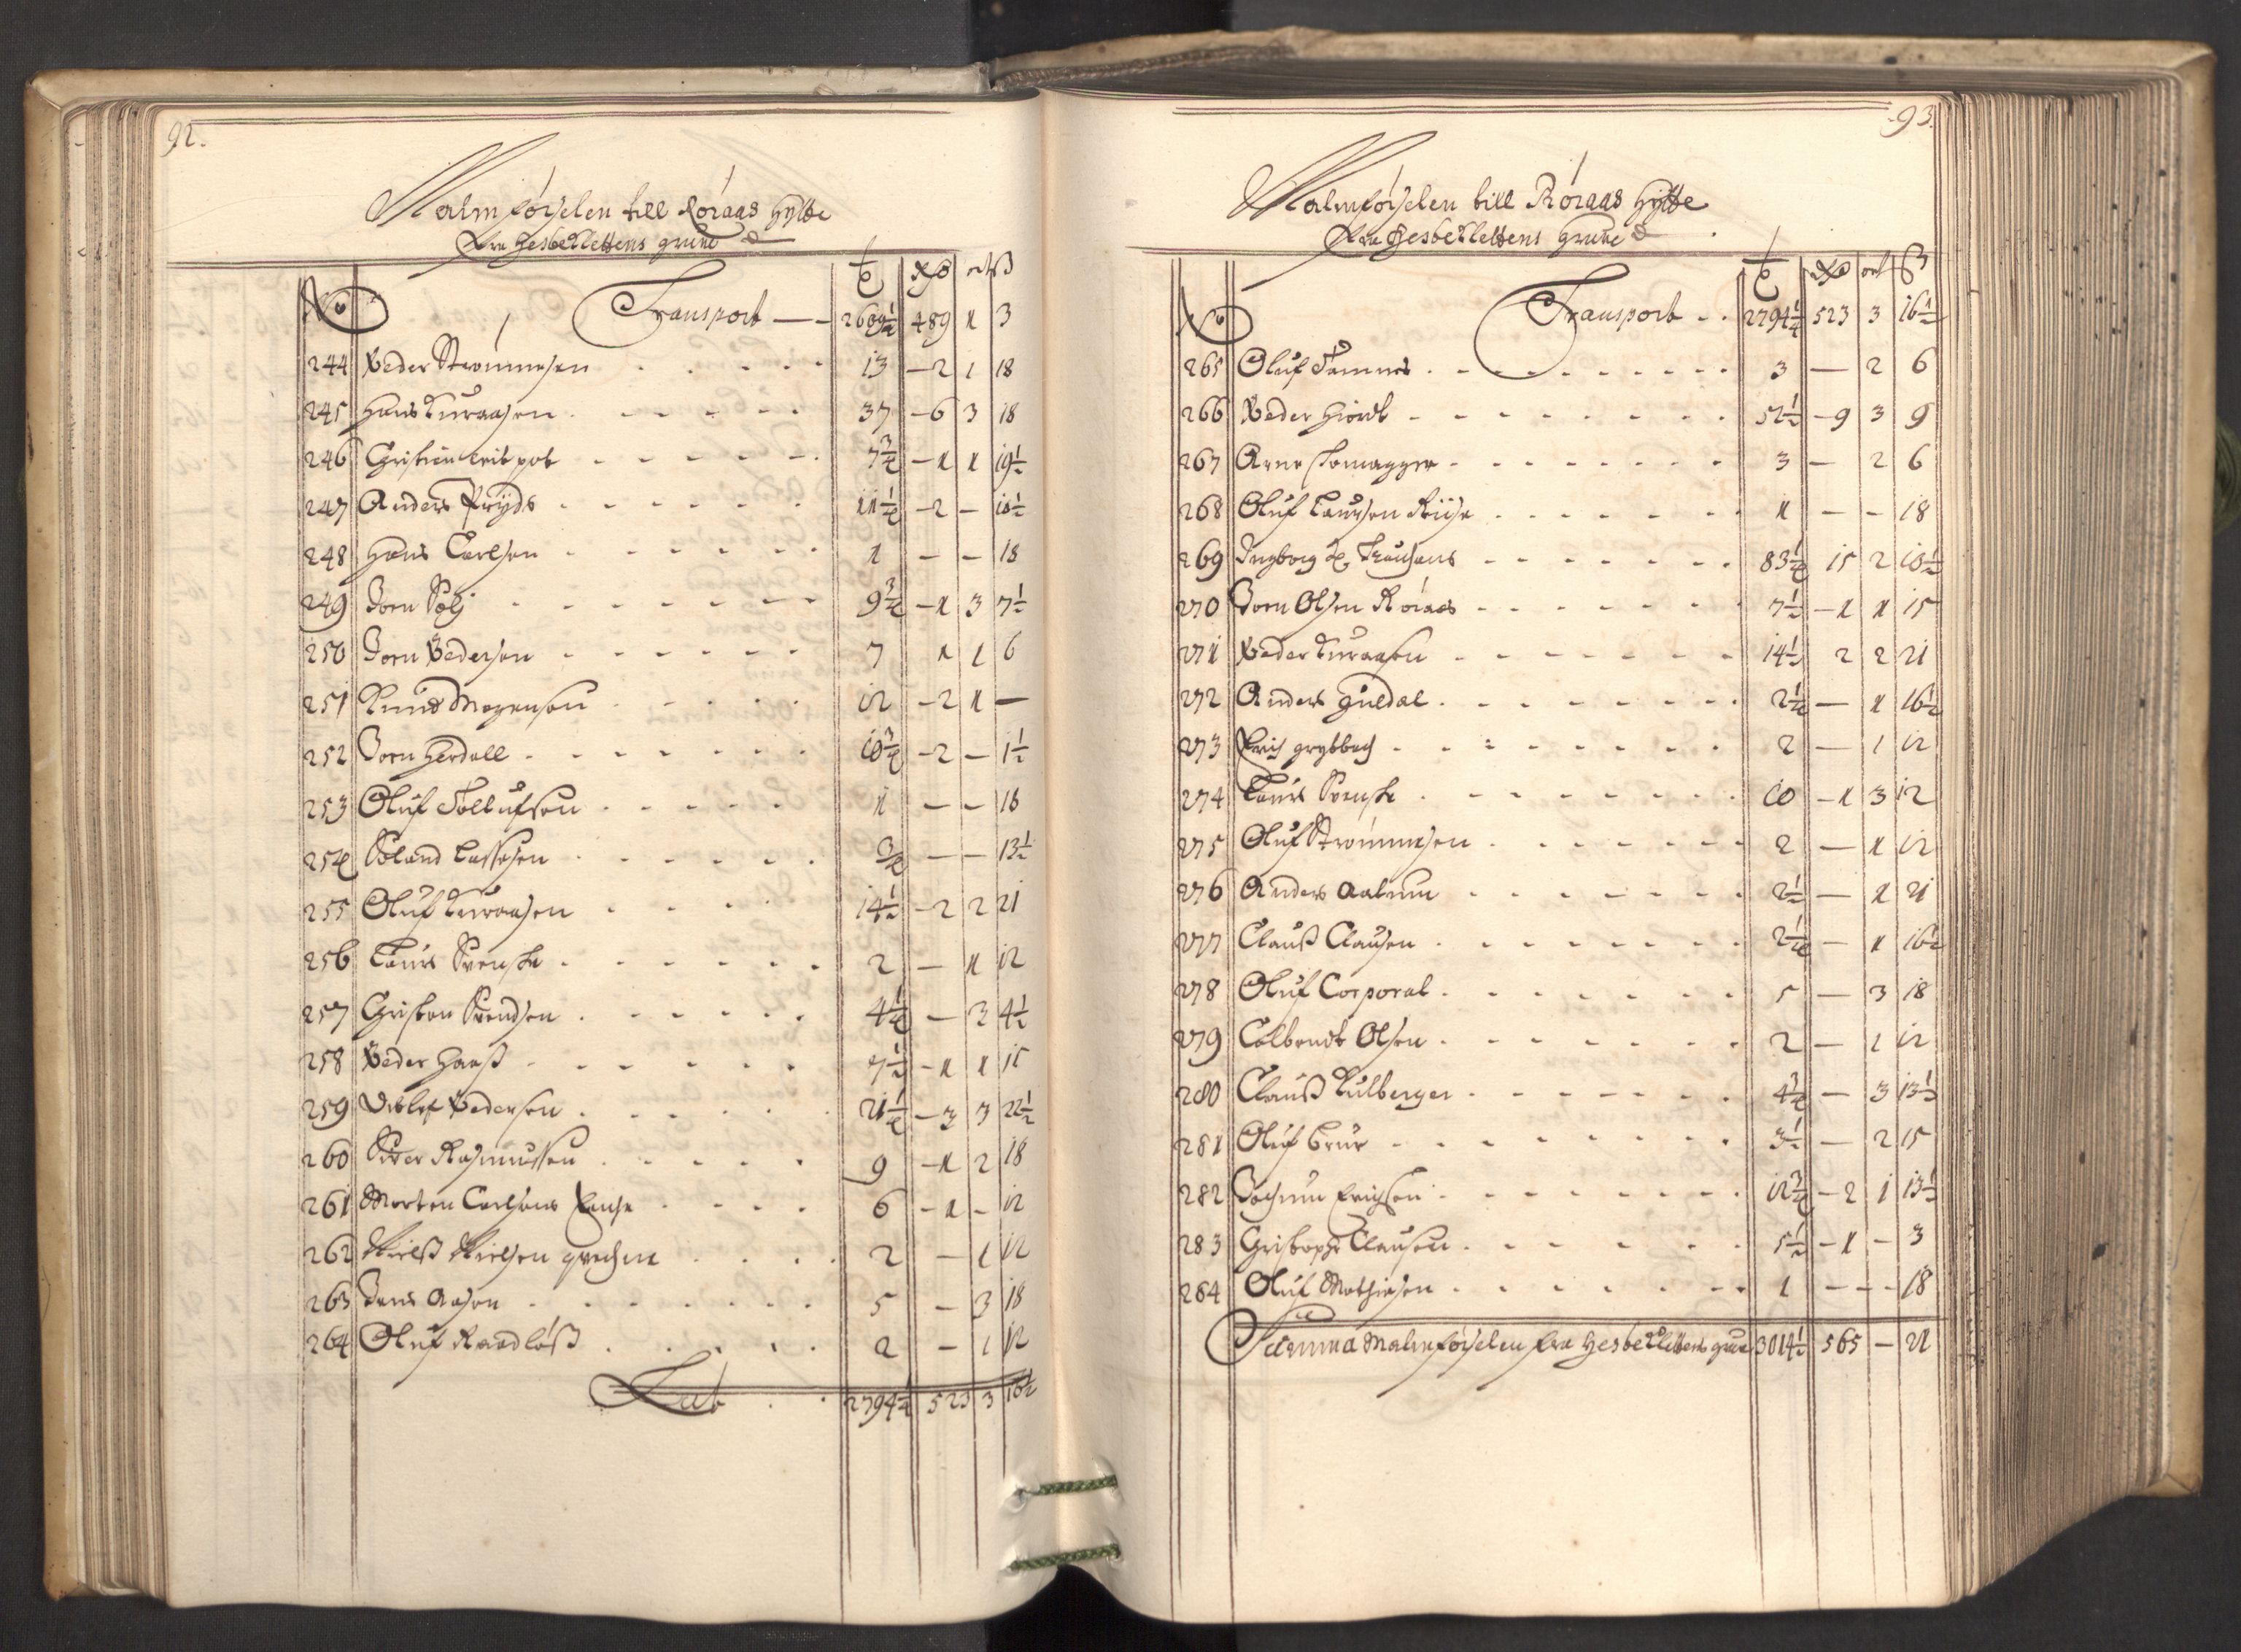 92.
Malmförselen till Röraas Hytte
fra Hestkletttens grube
No Transport — 2609½ 489 1 3
244 Peder Strömmesen 13 — 2 1 18
245 Hans Kuraasen 37 — 6 3 18
246 Christen 7¾ — 1 1 19½
247 Anders Fryds 11¼ — 2 — 10½
248 Hans Carlsen 1 — — 18
249 Joen Sölj 9¾ — 1 3 7½
250 Joen Pedersen 7 1 1 6
251 Knud Mogensen 12 — 2 1 —
252 Joen Herdall 10¾ — 2 — 1½
253 Oluf Tollufsen 1 — — 18
254 Roland Lassesen ¾ — — 13½
255 Oluf Kuraasen 14½ — 2 2 21
256 Lauris Svenske 2 — 1 12
257 Christen Svendsen 4¼ — 3 4½
258 Peder Haaß 7½ — 1 1 15
259 Ditlef Pedersen 21¼ — 3 3 22½
260 Siver Rasmussen 9 — 1 2 18
261 Morten Carlsens Enche 6 — 1 — 12
262 Nielß Nielsen 2 — 1 12
263 Jens Aasen 5 — 3 18
264 Oluf Raadlöß 2 — 1 12
Lat 2794¼ 523 3 16½
93.
Malmförselen till Röraas Hytte
fra Hestkletttens Grube
No Transport 2794¼ 523 3 16½
265 Oluf Tamnes 3 — 2 6
266 Peder Hiort 52½ — 9 3 9
267 Arne Skomagger 3 — 2 6
268 Oluf Laursen Riise 1 — — 18
269 Ingborg Sl. Trousens 83¼ 15 2 10½
270 Joen Olsen Röraas 7½ — 1 1 15
271 Peder Kuraasen 14½ 2 2 21
272 Anders Guldal 2¼ — 1 16½
273 Erich grytbach 2 — 1 12
274 Lauris Svenske 10 — 1 3 12
275 Oluf Strömmesen 2 — 1 12
276 Anders Aalmu 2½ — 1 21
277 Clauß Clausen 2¼ — 1 16½
278 Oluf Corporal 5 — 3 18
279 Colbendt Olsen 2 — 1 12
280 Clauß Kulberger 4¾ — 3 13½
281 Oluf Brue 3½ — 2 15
282 Jochum Erichsen 12¾ — 2 1 13½
283 Christopher Clausen 5½ — 1 — 3
284 Oluf Mathiesen 1 — — 18
Summa Malmförselen fra Hestkletttens grube 3014½ 565 — 21